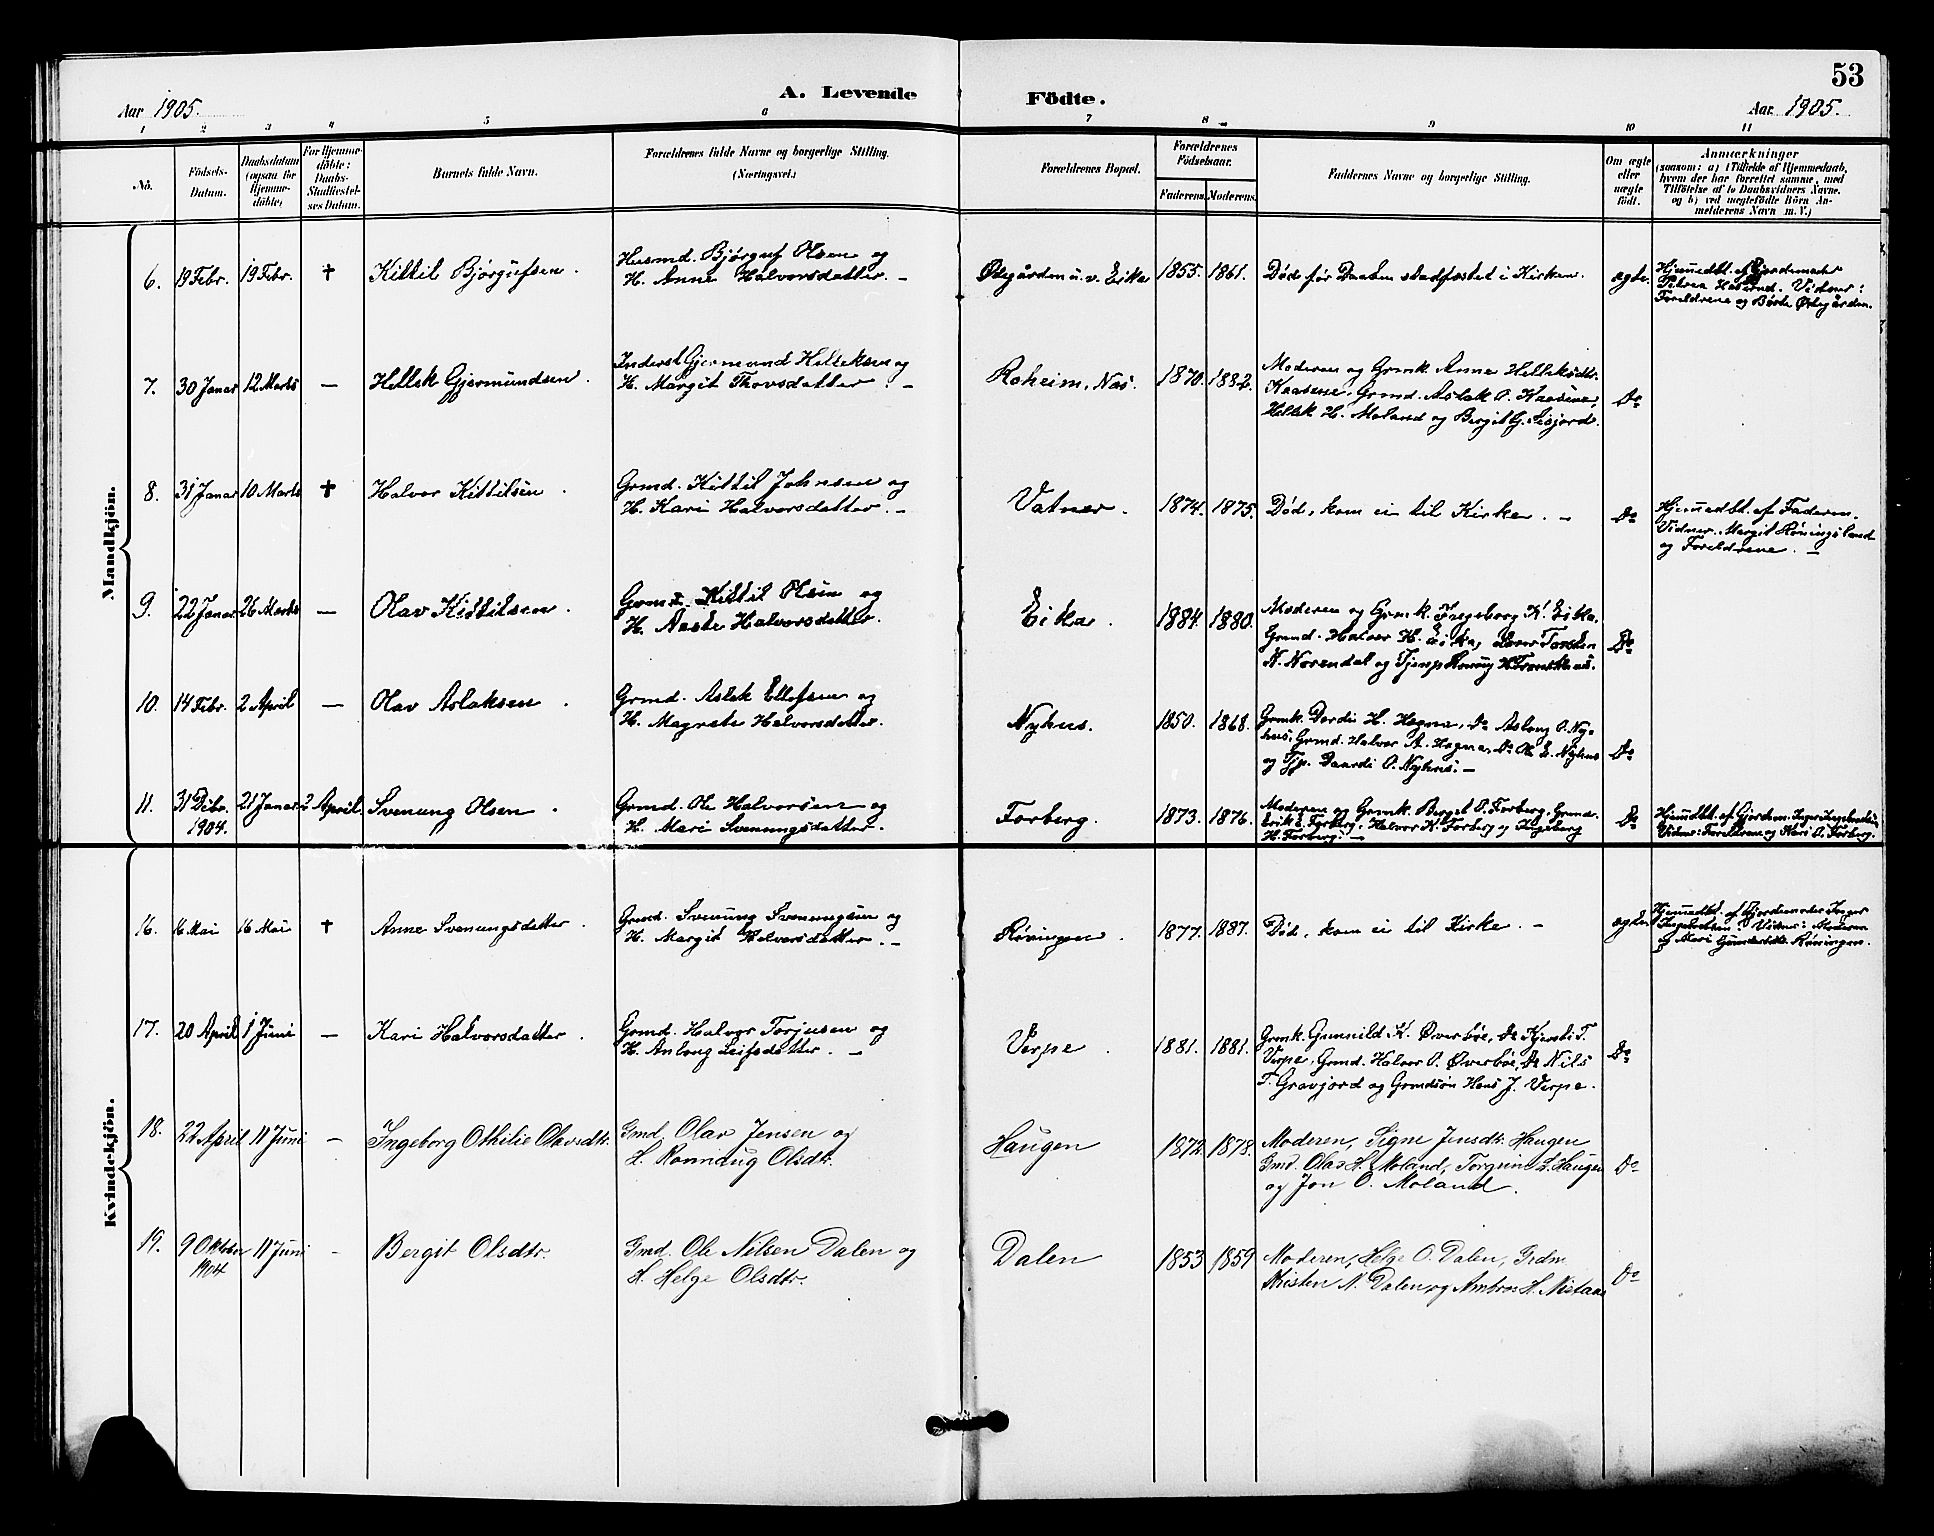 53
Aar 1905.
A. Levende Födte.
Aar 1905.
1 2 3 4 5 6 7 8 9 10 11
Nö.
Födsels-Datum.
Daabsdatum (ogsaa for Hjemmedöbte)
For Hjemmedöbte: Daabs-Stadfæstelses Datum.
Barnets fulde Navn.
Forældrenes fulde Navne og borgerlige Stilling.
(Næringsvei.)
Forældrenes Bopæl.
Forældrenes Födselsaar.
Faderens. Moderens.
Faddernes Navne og borgerlige Stilling.
Om ægte eller uægte födt.
Anmærkninger
(saasom: a) i Tilfælde af Hjemmedaab,
hvem der har forrettet samme, med
Tilföielse af to Daabsvidners Navne.
og b) ved uægtefödte Börn Anmelderens Navn m. V.)
Mandkjön.
6. 19 Febr. 19 Febr. † Kittil Bjørgufsen.
Husmd. Bjørguf Olsen og
H. Anne Halvorsdatter. –
Ødegården u. v. Eika 1855. 1861.
Død før Daaben stadfæstet i Kirken.
ægte.
Hjemmedbt. af Gjordemoder
Vidner:
Foreldrene og Børte Ødegården.
7. 30 Janar 12 Marts – Hellek Gjermundsen.
Inderst Gjermund Helleksen og
H. Margit Thovsdatter –
Roheim, Nas. 1870. 1882.
Moderen og Grmk Anne Helleksdtr.
Kaasene, Grmd. Aslak O. Kaasene,
Hellek H. Moland og Bergit G.
Do
8. 31 Janar 10 Marts † Halvor Kittilsen.
Grmd. Kittil Johnsen og
H. Kari Halvorsdatter. –
Vatnar. 1874. 1875.
Død, kom ei til Kirke. –
Do
Hjemmedbt. af Faderen.
Vidner. Margit Røningsland
og Foreldrene. –
9. 22 Janar 26 Marts – Olav Kittilsen.
Grmd. Kittil Olsen og
H. Aaste Halvorsdatter.
Eika. 1884. 1880.
Moderen og Grmk. Ingeborg K. Eika,
Grmd. Halvor H. Eika, Torsten
N. Norendal og Tjenp.
Do
10. 14 Febr. 2 April – Olav Aslaksen.
Grmd. Aslak Ellefsen og
H. Magrete Halvorsdatter.
Nyhus. 1850. 1868.
Grmk. Dordi H. Hegna, Do Aslaug O. Nyhus,
Grmd. Halvor A. Hegna, Do Ole E. Nyhus
og Tjp. Daardi O. Nyhus. –
Do
11. 31 Debr. 1904. 21 Janar 2 April Svenung Olsen.
Grmd. Ole Halvorsen og
H. Mari Svenungsdatter.
Forberg. 1873. 1876.
Moderen og Grmk. Bergit O. Forberg, Grmd.
Erik E. Forberg, Halvor K. Forberg og Ingeborg
H. Forberg. –
Do
Hjemdbt. af Gjordem.
Vidner: Foreldrene og Kari O. Forberg.
Kvindekjön.
16. 16 Mai 16 Mai † Anne Svenungsdatter.
Grmd. Svenung Svenungsen og
H. Margit Halvorsdatter. –
Røningen. 1877. 1887.
Død, kom ei til Kirke. –
ægte.
Hjemmedbt. af Gjordemoder Inger
Vidner: Moderen
og Mari Røningen.
17. 20 April 1 Juni – Kari Halvorsdatter.
Grmd. Halvor Torjusen og
H. Anlaug Leifsdatter. –
Verpe. 1881. 1881.
Grmk. Gunnild K. Øverbøe, Do Kjersti T.
Verpe, Grmd. Halvor O. Øverbøe, Do Nils
T. Gravjord og Grmdsøn Hans J. Verpe.
Do
18. 22 April 11 Juni – Ingeborg Othilie Olavsdtr.
Gmd. Olav Jensen og
H. Rønnaug Olsdtr.
Haugen 1872. 1878.
Moderen, Signe Jensdtr. Haugen
Gmd. Olav H. Moland, Torgrim L. Haugen
og Jon O. Moland.
Do
19. 9 Oktober 1904 11 Juni – Bergit Olsdtr.
Gmd. Ole Nilsen Dalen og
H. Helge Olsdtr.
Dalen 1853 1859
Moderen, Helge O. Dalen, Grdm
N. Dalen og Ambros H. Nistaas
Do